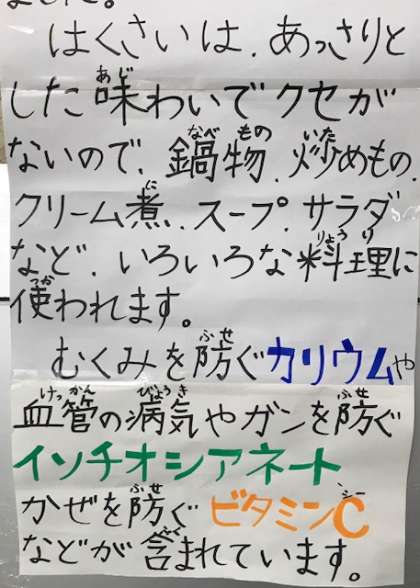 ました。
はくさいは、あっさりと
した味わいでクセが
ないので、鍋物、炒めもの、
クリーム煮、スープ、サラダ
など、いろいろな料理に
使われます。
むくみを防ぐカリウムや
血管の病気やガンを防ぐ
イソチオシアネート
かぜを防ぐビタミンC
などが含まれています。